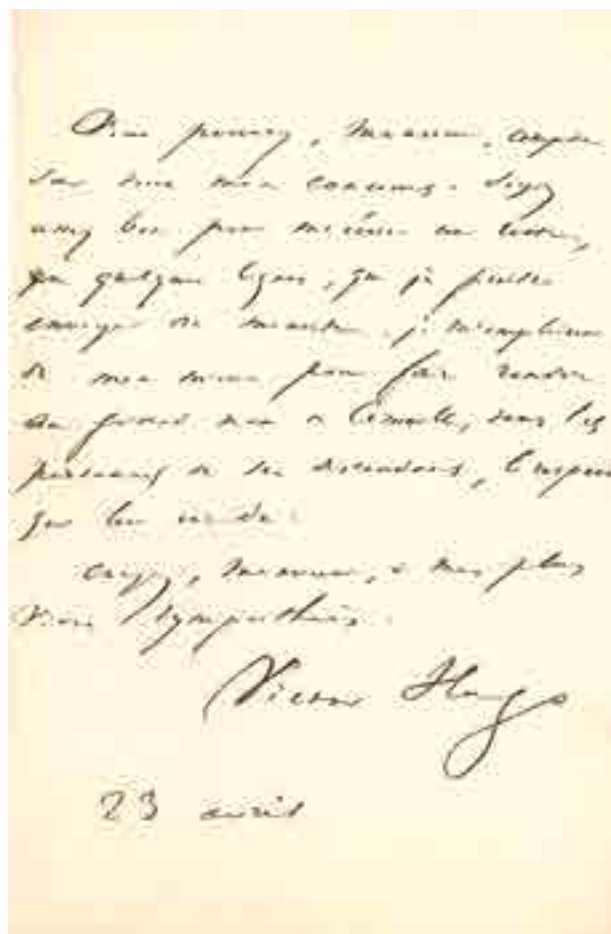 Vous pouvez, Monsieur, compter
sur tout mon concours. Soyez
assez bon pour m'écrire une lettre,
quelques lignes, que je puisse
envoyer au ministre. je
de mon mieux pour faire rendre
au grand nom de Corneille, dans les
de ses descendants, le respect
qui lui est dû.
Croyez, Monsieur, à mes plus
vives sympathies.
Victor Hugo
23 avril